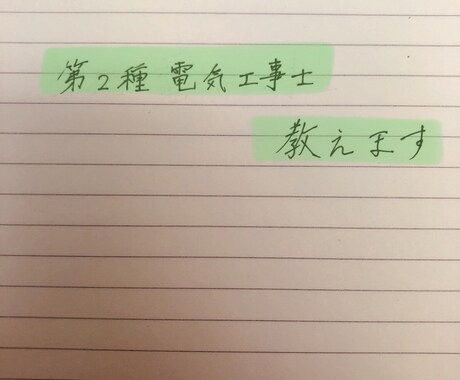 第2種 電気工事士
教えます